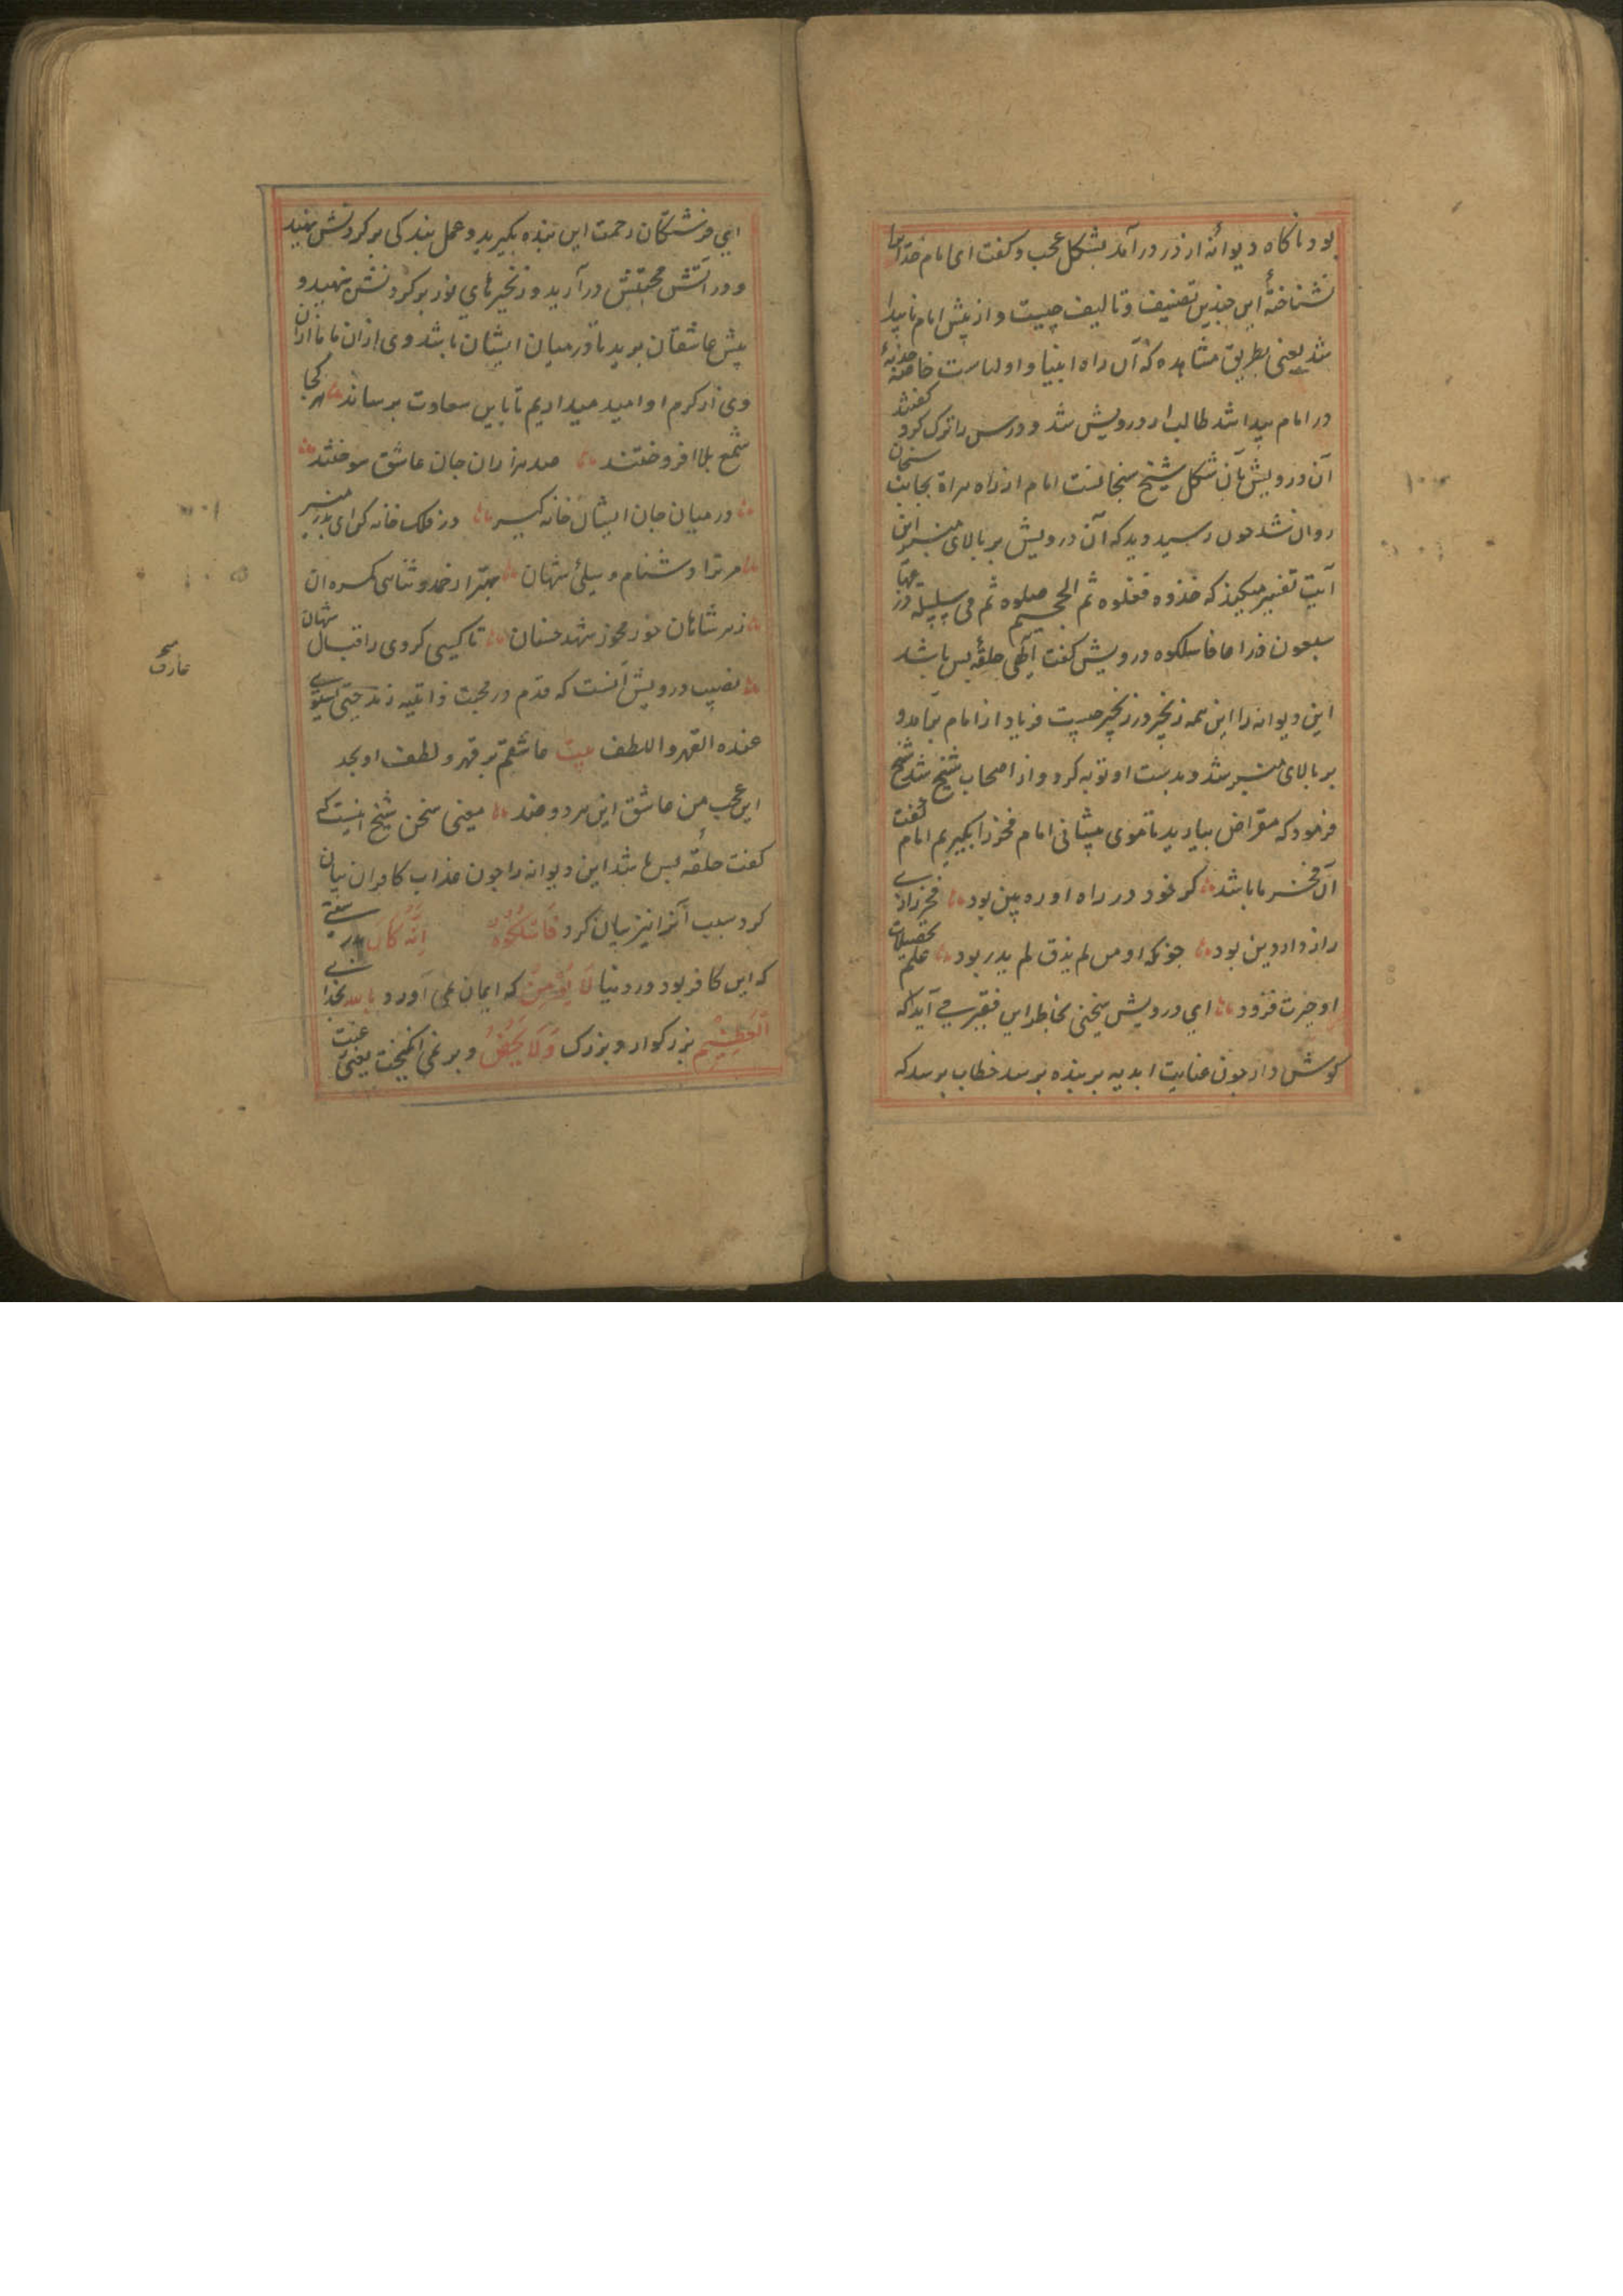 بود ناکاه دیوانه از در درآمد بشکل عجب و کفت ای امام خدایرا
نشناختهٔ این چندین تصنیف و تالیف چیست و از پیش امام ناپیدا
شد یعنی بطریق مشاهده که آن راه انبیا و اولیاست خاصه جذبهٔ
در امام پیدا شد طالب درویش شد و درس را ترک کرد کفتند
آن درویش بآن شکل شیخ سنجانست امام از راه هراة بجانب سنجان
روان شد چون رسید دید که آن درویش بر بالای منبر این
آیت تفسیر میکند که خذوه فغلوه ثم الجحیم صلوه ثم فی سلسلة ذرعها
سبعون ذراعا فاسلکوه درویش کفت الهی حلقهٔ بس باشد
این دیوانه را این همه زنجیر در زنجیر چیست فریاد از امام برآمد و
بر بالای منبر شد و بدست او توبه کرد و از اصحاب شیخ شد شیخ
فرمود که مقراض بیارید تا موی پیشانی امام فخر را بکیریم امام کفت
آن فخر ما باشد کر خود در راه او ره بین بود فخر رازی
راز دار دین بود چونکه او من لم یذق لم یدر بود علم تحصیلات
او حیرت فزود ای درویش سخنی بخاطر این فقیر می آید که
کوش دار چون عنایت ابدیه بر بنده برسد خطاب برسد که
ای فرشتکان رحمت این بنده بکیرید و عمل بندکی بر کردنش نهید
و در آتش محبتش درآرید و زنجیرهای نور بر کردنش نهید و
پیش عاشقان برید تا در میان ایشان باشد وی از آن ما ما از آن
وی از کرم او امید میداریم تا باین سعادت برساند هر کجا
شمع بلا افروختند صد هزاران جان عاشق سوختند
در میان جان ایشان خانه کیر در فلک خانه کن ای بدر منیر
مر ترا دشنام و سیلئ شهان بهتر از حمد و ثنای کمرهان
زهر شاهان خور مخور شهد خسان تا کسی کردی ز اقبال شهان
نصیب درویش آنست که قدم در محبت ذاتیه زند حتی یستوی
عنده القهر و اللطف بیت عاشقم بر قهر و لطف او بجد
این عجب من عاشق این هر دو ضد یعنی سخن شیخ اینست که
کفت حلقه بس باشد این دیوانه را چون عذاب کافران بیان
کرد سبب آنرا نیز بیان کرد فاسلکوه انه کان بدرستی
که این کافر بود در دنیا لا یؤمن که ایمان نمی آورد بالله بخدای
العظیم بزرکوار و بزرک ولا یحض و بر نمی انکیخت یعنی
عارف